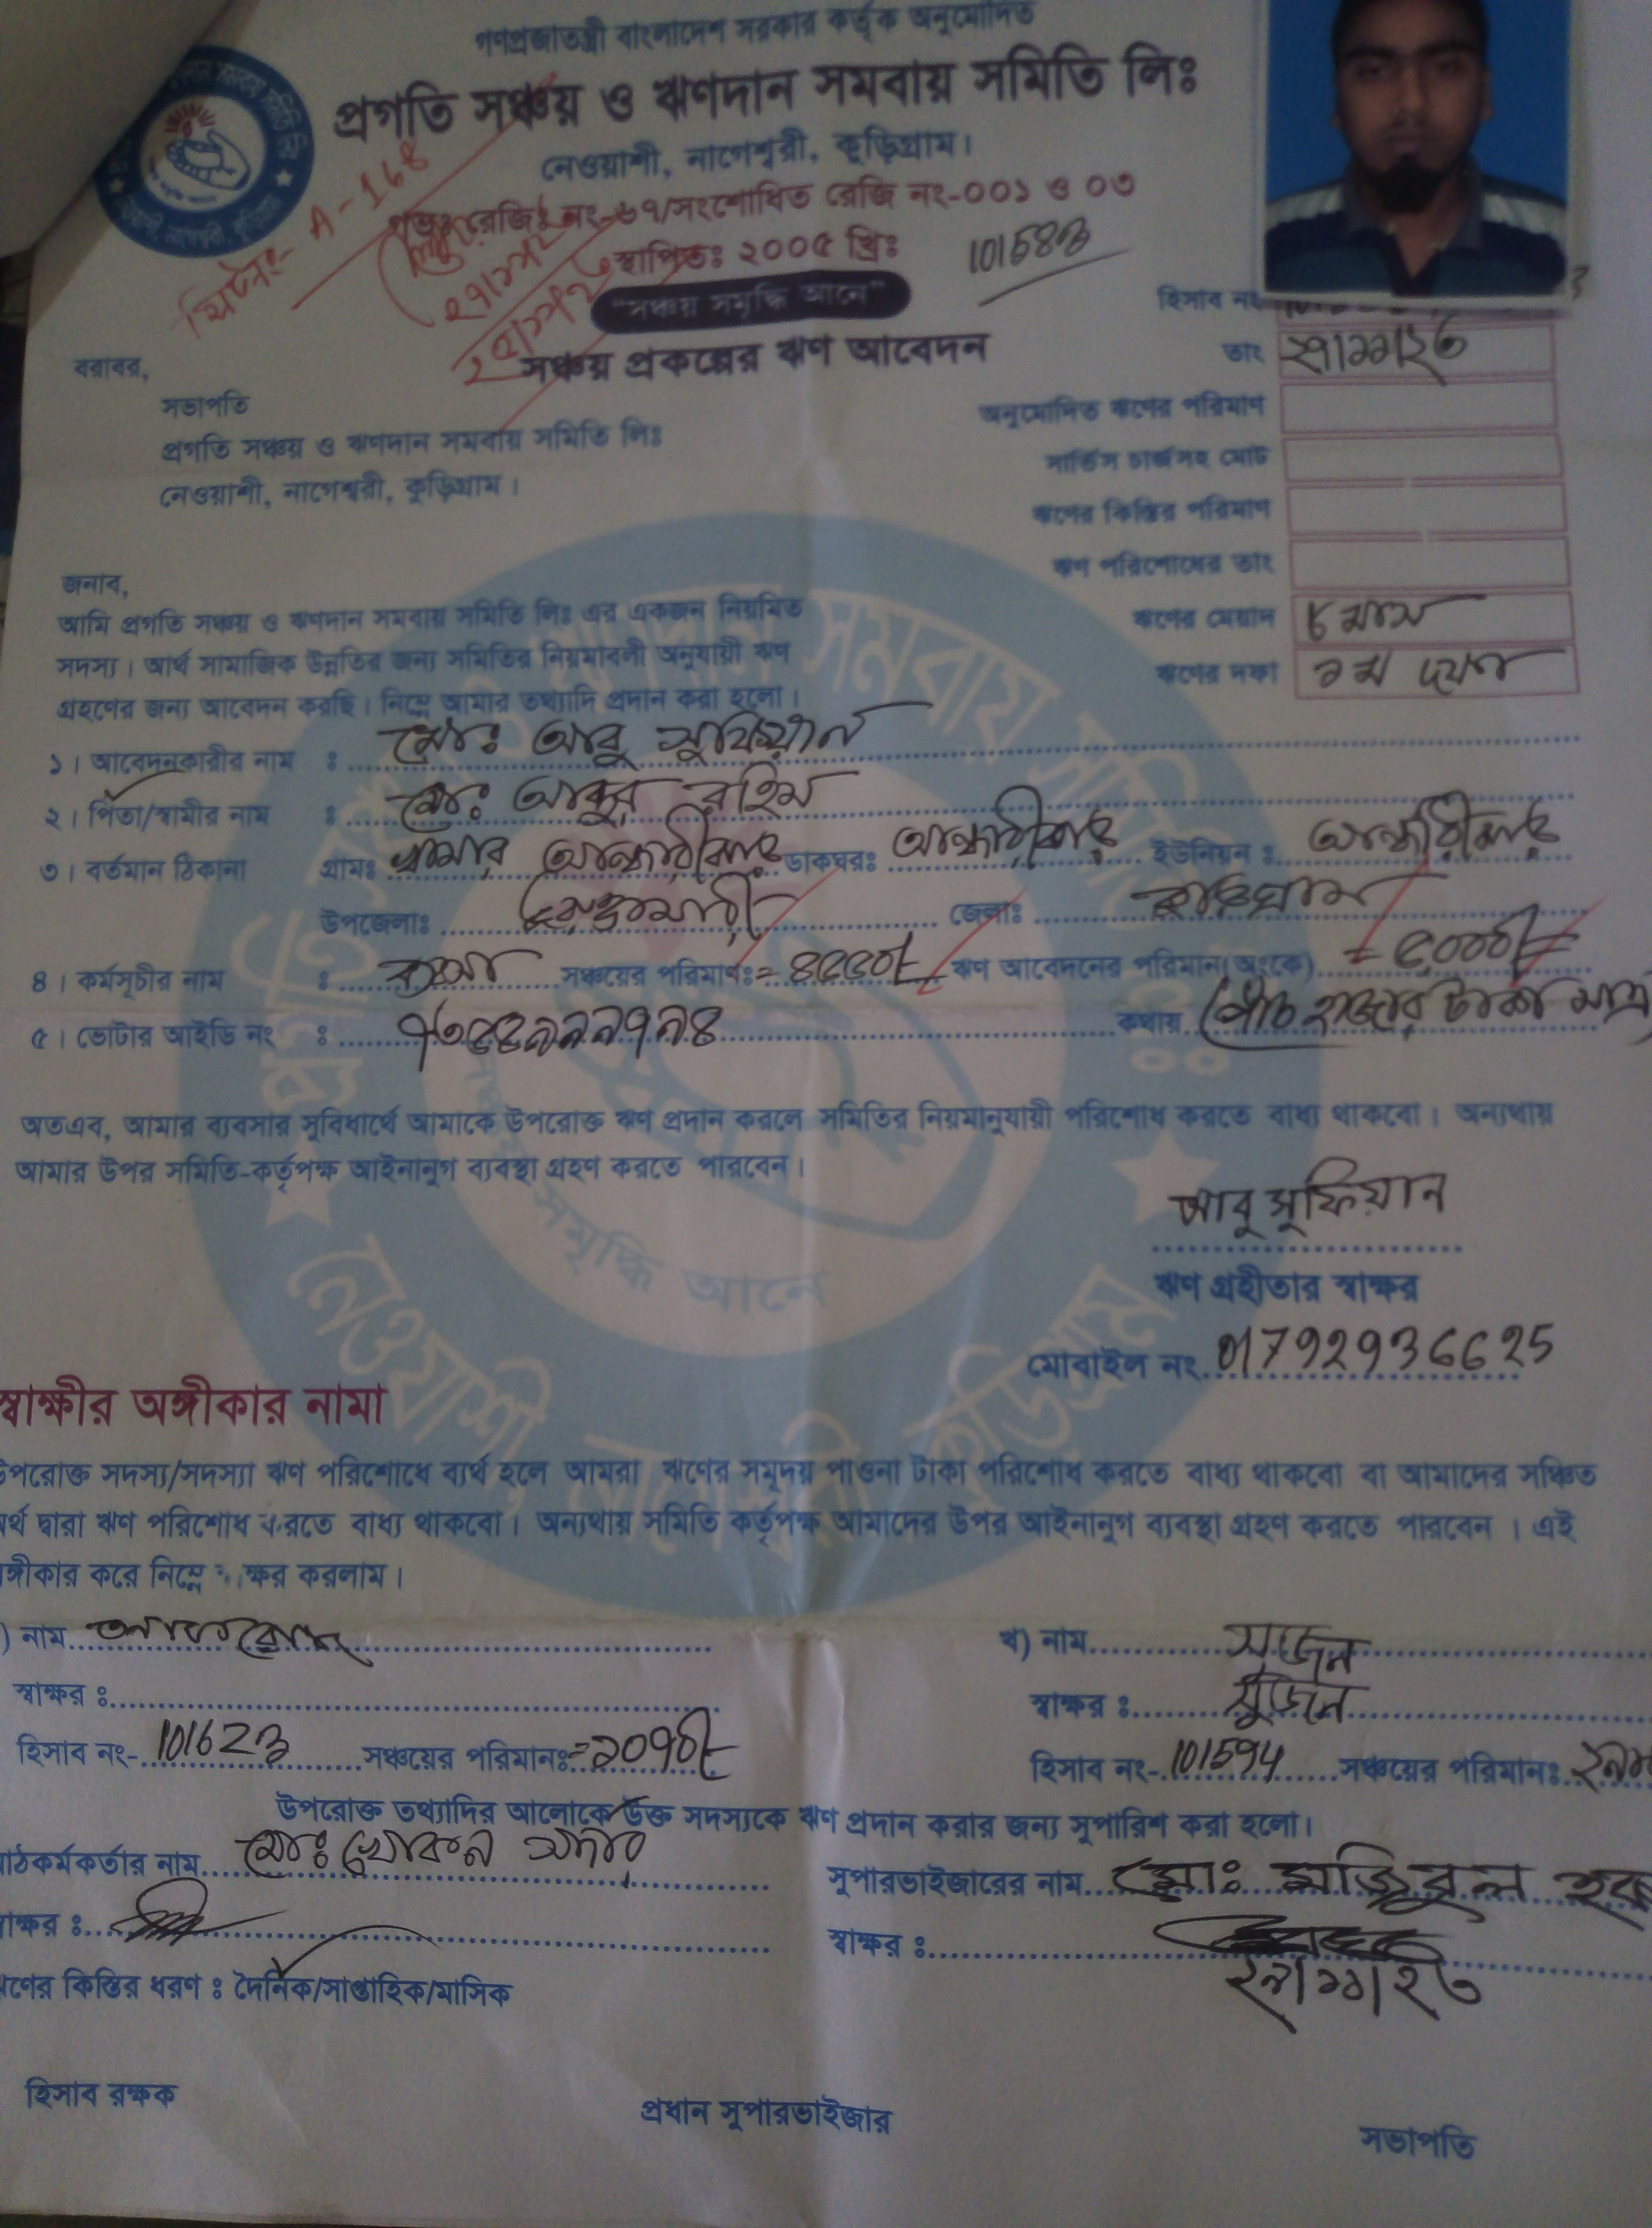 গণপ্রজাতন্ত্রী বাংলাদেশ সরকার কর্তৃক অনুমোদিত
প্রগতি সঞ্চয় ও ঋণদান সমবায় সমিতি লিঃ
নেওয়াশী, নাগেশ্বরী, কুড়িগ্রাম।
গভঃ রেজিঃ নং-৬৭/সংশোধিত রেজি নং-০০১ ও ০৩
স্থাপিতঃ ২০০৫ খ্রিঃ
A-168
"সঞ্চয় সমৃদ্ধি আনে"
হিসাব নং
সঞ্চয় প্রকল্পের ঋণ আবেদন
তাং
বরাবর,
সভাপতি
অনুমোদিত ঋণের পরিমাণ
প্রগতি সঞ্চয় ও ঋণদান সমবায় সমিতি লিঃ
সার্ভিস চার্জসহ মোট
নেওয়াশী, নাগেশ্বরী, কুড়িগ্রাম।
ঋণের কিস্তির পরিমাণ
ঋণ পরিশোধের তাং
জনাব,
আমি প্রগতি সঞ্চয় ও ঋণদান সমবায় সমিতি লিঃ এর একজন নিয়মিত
ঋণের মেয়াদ ৮ মাস
সদস্য। আর্থ সামাজিক উন্নতির জন্য সমিতির নিয়মাবলী অনুযায়ী ঋণ
ঋণের দফা ১ম দফা
গ্রহণের জন্য আবেদন করছি। নিম্নে আমার তথ্যাদি প্রদান করা হলো।
১। আবেদনকারীর নাম : মোঃ আবু সুফিয়ান
২। পিতা/স্বামীর নাম : মোঃ আব্দুর রহিম
৩। বর্তমান ঠিকানা গ্রামঃ খামার আন্ধারীঝাড় ডাকঘরঃ আন্ধারীঝাড় ইউনিয়ন : আন্ধারীঝাড়
উপজেলাঃ ভুরুঙ্গামারী জেলাঃ কুড়িগ্রাম
৪। কর্মসূচীর নাম : ব্যবসা সঞ্চয়ের পরিমাণঃ ঋণ আবেদনের পরিমান(অংকে) = ৫০০০/=
৫। ভোটার আইডি নং : কথায় পাঁচ হাজার টাকা মাত্র
অতএব, আমার ব্যবসার সুবিধার্থে আমাকে উপরোক্ত ঋণ প্রদান করলে সমিতির নিয়মানুযায়ী পরিশোধ করতে বাধ্য থাকবো। অন্যথায়
আমার উপর সমিতি-কর্তৃপক্ষ আইনানুগ ব্যবস্থা গ্রহণ করতে পারবেন।
আবু সুফিয়ান
ঋণ গ্রহীতার স্বাক্ষর
মোবাইল নং 01792936625
স্বাক্ষীর অঙ্গীকার নামা
উপরোক্ত সদস্য/সদস্যা ঋণ পরিশোধে ব্যর্থ হলে আমরা ঋণের সমূদয় পাওনা টাকা পরিশোধ করতে বাধ্য থাকবো বা আমাদের সঞ্চিত
র্থ দ্বারা ঋণ পরিশোধ করতে বাধ্য থাকবো। অন্যথায় সমিতি কর্তৃপক্ষ আমাদের উপর আইনানুগ ব্যবস্থা গ্রহণ করতে পারবেন। এই
ঙ্গীকার করে নিম্নে ক্ষর করলাম।
) নাম
খ) নাম সুজন
স্বাক্ষর :
স্বাক্ষর : সুজন
হিসাব নং- সঞ্চয়ের পরিমানঃ
হিসাব নং- 101594 সঞ্চয়ের পরিমানঃ
উপরোক্ত তথ্যাদির আলোকে উক্ত সদস্যকে ঋণ প্রদান করার জন্য সুপারিশ করা হলো।
াঠকর্মকর্তার নাম মোঃ খোকন
সুপারভাইজারের নাম মোঃ মজিবুল হক
াক্ষর :
স্বাক্ষর :
ণের কিস্তির ধরণ : দৈনিক/সাপ্তাহিক/মাসিক
হিসাব রক্ষক
প্রধান সুপারভাইজার
সভাপতি